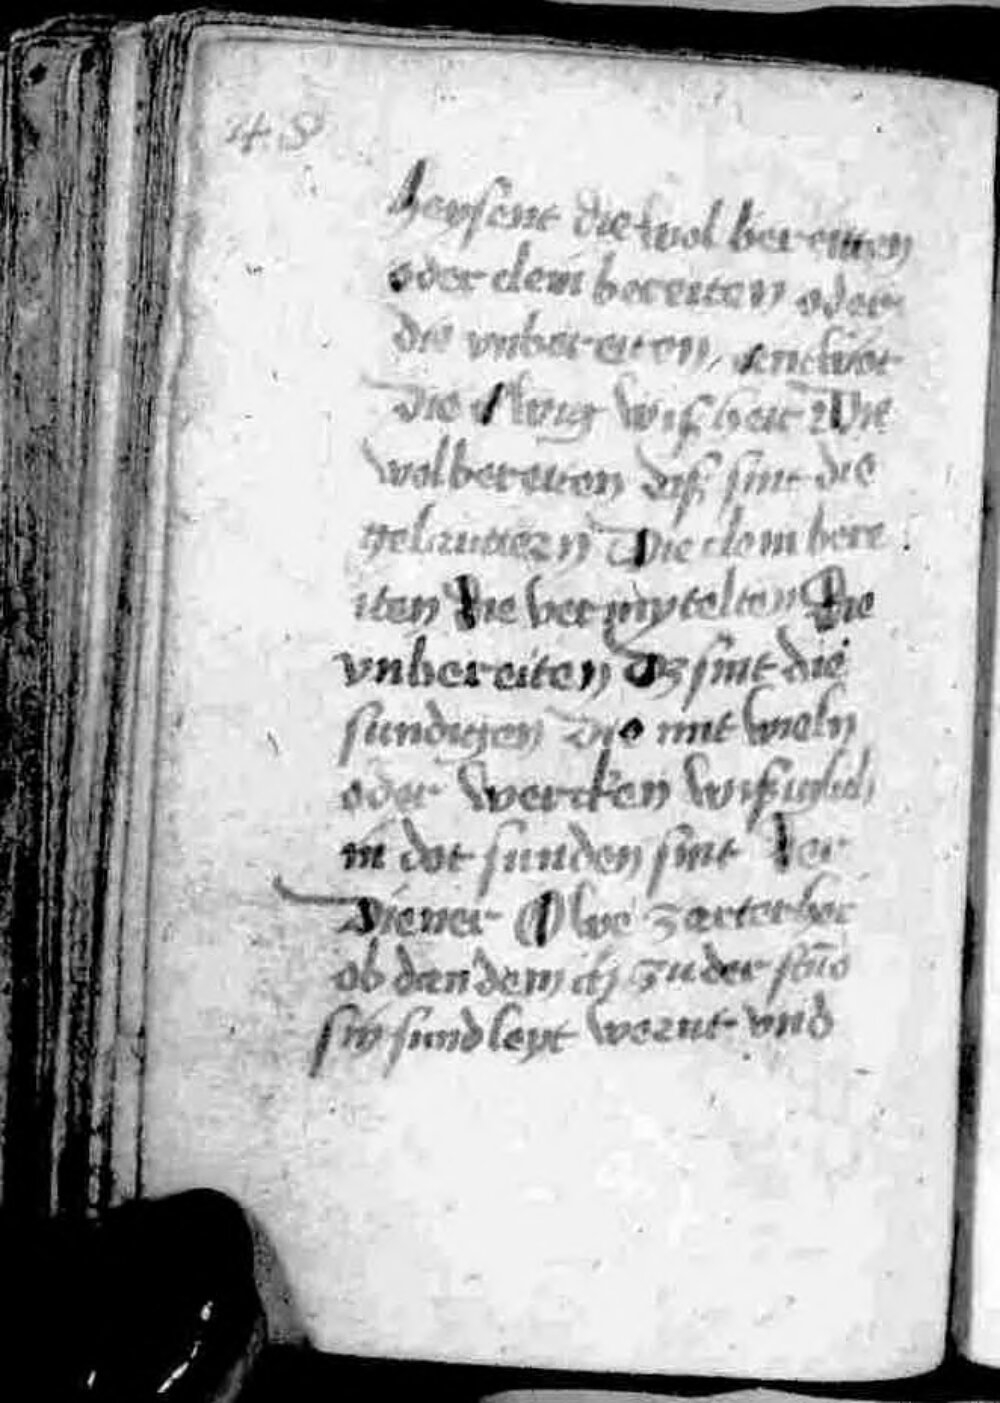 48
heysent die wol bereitten
oder clein bereiten oder
die vnbereiten, antwort
Die Ewig wißheit Die
wolbereiten diß sint die
geluttern Die clein bere
iten Die vermytelten Die
vnbereiten Dz sint die
sundigen Die mit willn
oder wercken
in dot sunden sint Der
Diener Owe zarter her
ob dan dem zu der stūd
sin sund leyt wernt vnd